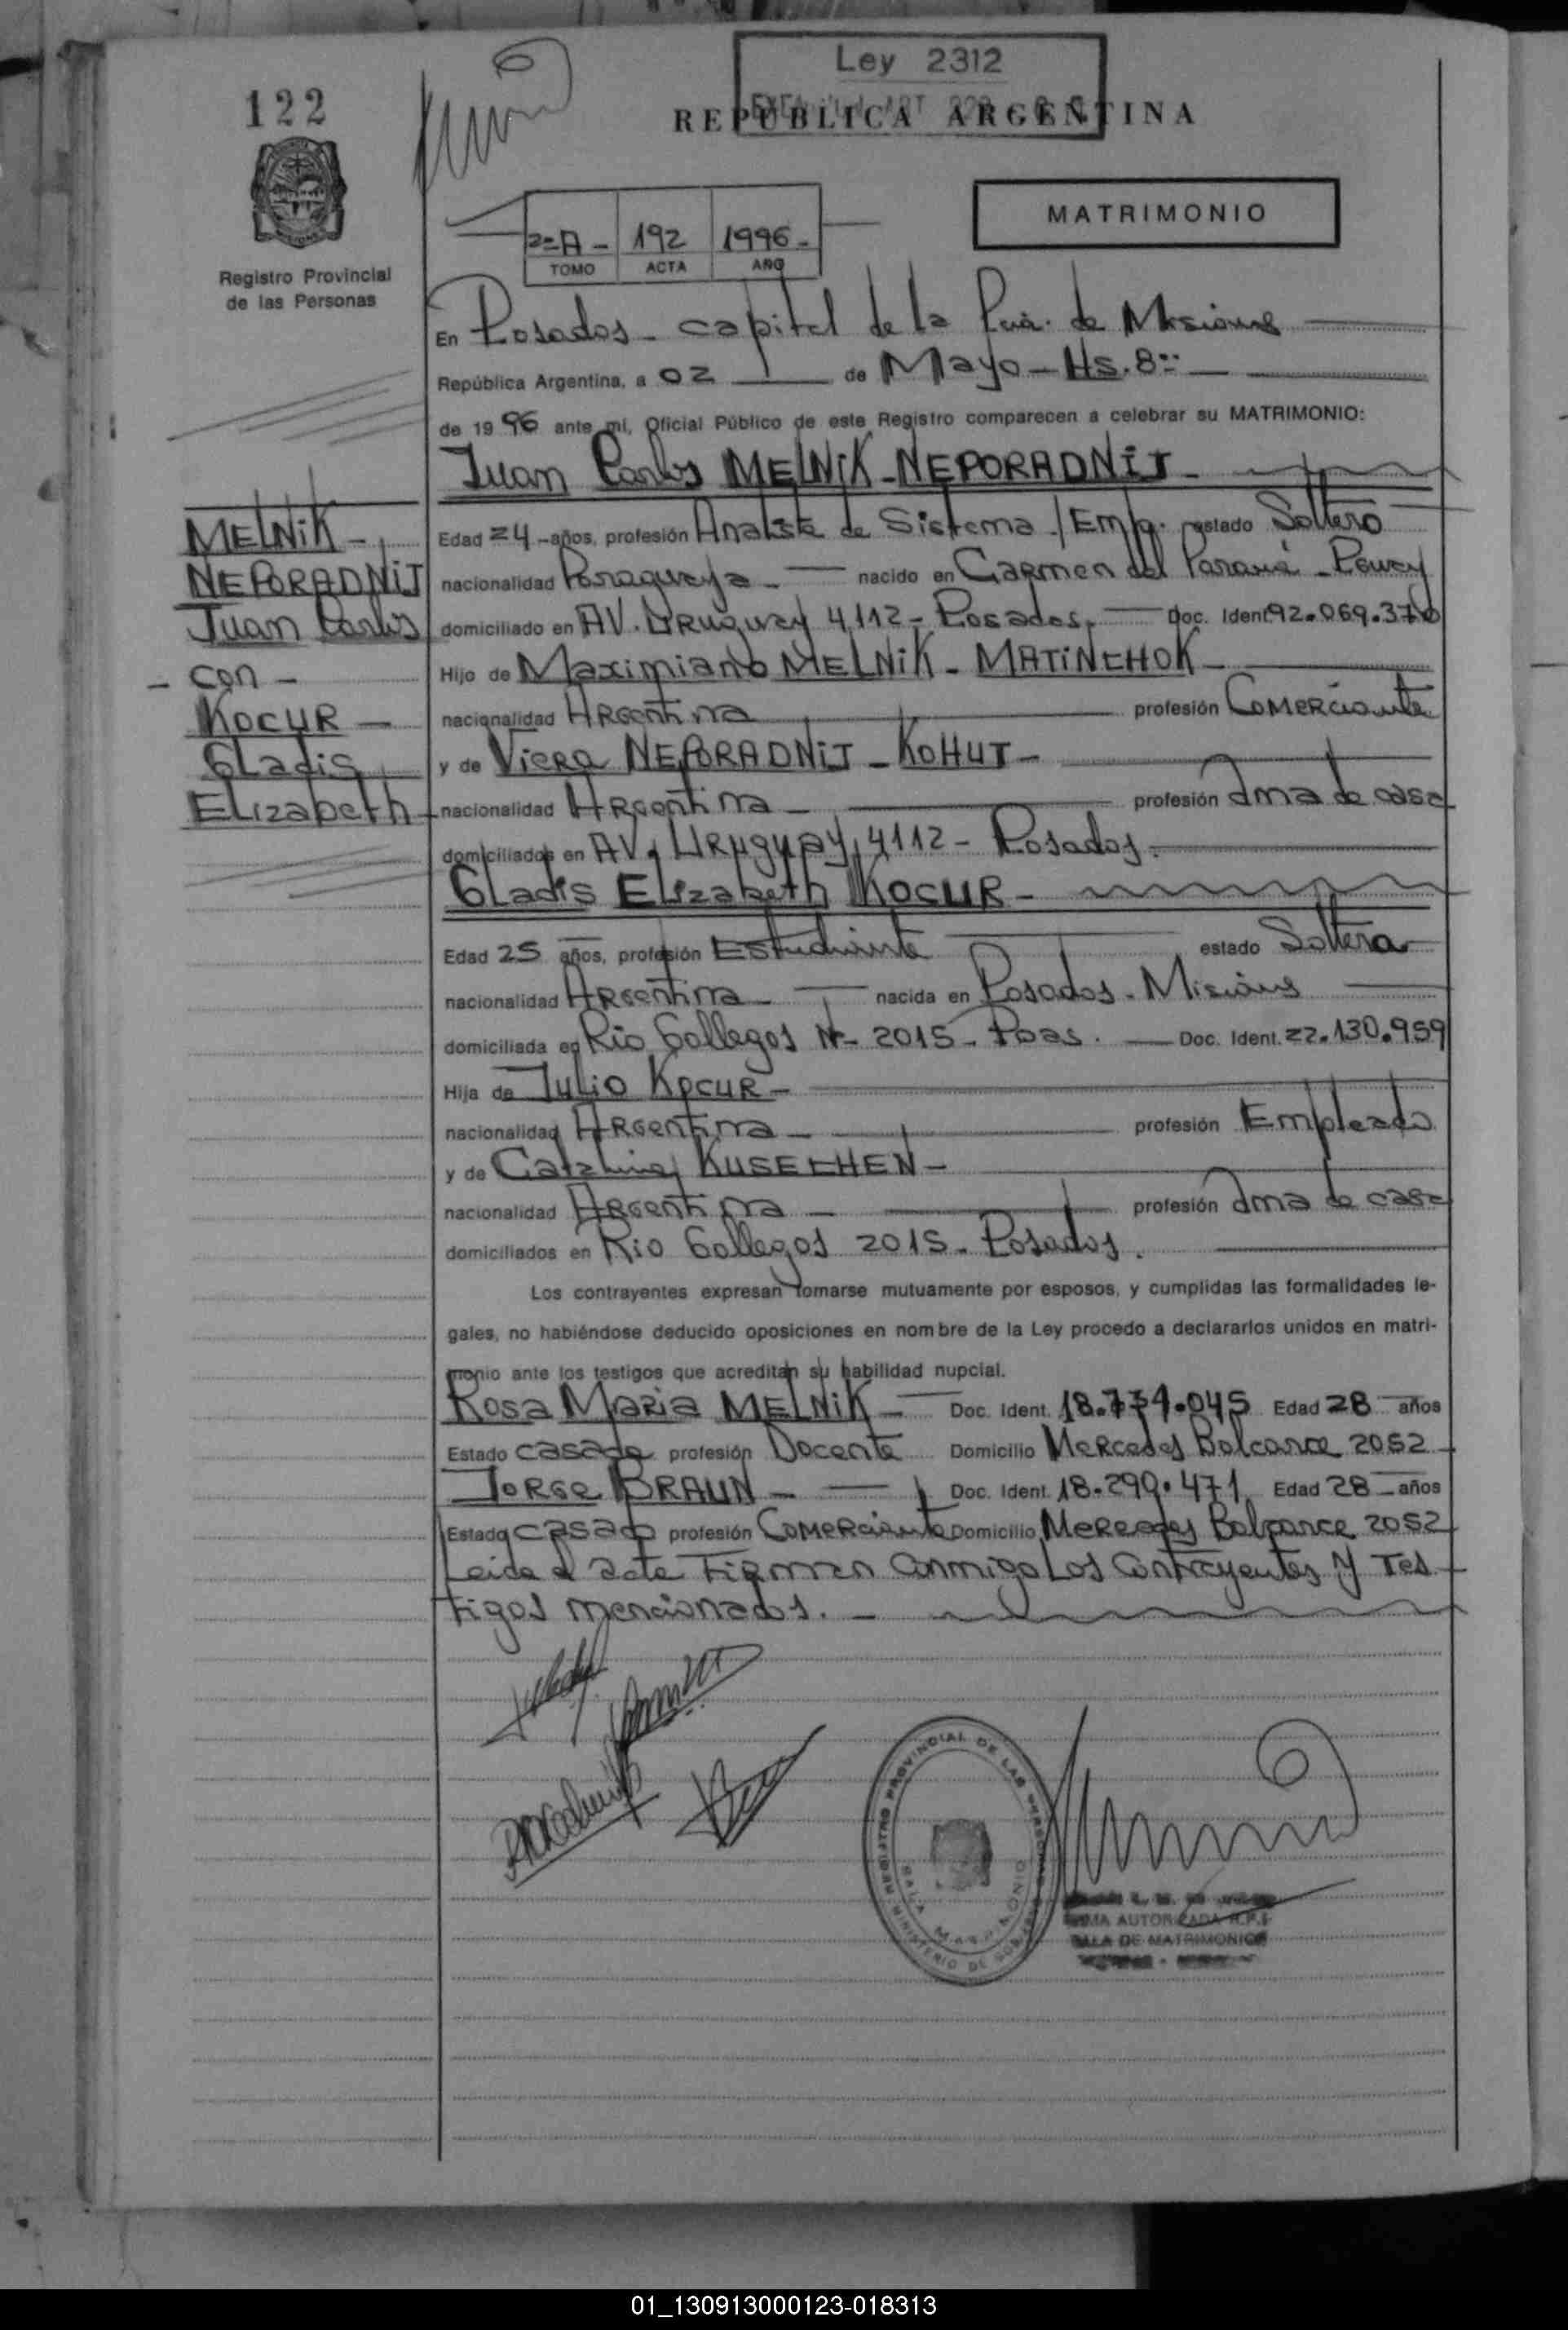 122
Ley 2312
REPUBLICA ARGENTINA
MATRIMONIO
2=A - 192 1996 -
TOMO ACTA AÑO
Registro Provincial
de las Personas
En Posadas - capital de la Pcia. de Misiones
República Argentina, a 02 de Mayo - Hs. 8:-
de 1996 ante mí, Oficial Público de este Registro comparecen a celebrar su MATRIMONIO:
Juan Carlos MELNiK - NEPORADNiJ -
MELNiK -
NEPORADNiJ
Juan Carlos
- con -
KOCUR -
GLadis
ELizabeth
Edad 24 - años, profesión Analista de Sistema / Emp. estado Soltero
nacionalidad Paraguaya - nacido en Carmen del Paraná -
domiciliado en AV. URuguay 4112 - Posadas. Doc. Ident. 92.069.370
Hijo de Maximiano MELNiK - MATiNCHOK -
nacionalidad ARgentina profesión COMERciante
y de VieRa NEPORADNiJ - KOHUT -
nacionalidad ARgentina - profesión Ama de casa
domiciliados en AV. URuguay 4112 - Posadas.
GLadis ELizabeth KOCUR -
Edad 25 años, profesión Estudiante estado Soltera
nacionalidad ARgentina - nacida en Posadas - Misiones
domiciliada en Rio Gallegos N- 2015 - Poas. Doc. Ident. 22.130.959
Hija de Julio KOCUR -
nacionalidad ARgentina - profesión Empleado
y de Catalina KUSECHEN -
nacionalidad ARgentina - profesión Ama de casa
domiciliados en Rio Gallegos 2015 - Posadas.
Los contrayentes expresan tomarse mutuamente por esposos, y cumplidas las formalidades le-
gales, no habiéndose deducido oposiciones en nombre de la Ley procedo a declararlos unidos en matri-
monio ante los testigos que acreditan su habilidad nupcial.
Rosa Maria MELNiK - Doc. Ident. 18.734.045 Edad 28 años
Estado casada profesión Docente Domicilio Mercedes Balcarce 2052
JORge BRAUN - Doc. Ident. 18.290.471 Edad 28 - años
Estado casado profesión COMERciante Domicilio Mercedes Balcarce 2052
Leida el acta Firman conmigo Los contrayentes y Tes
tigos mencionados. -
REGISTRO PROVINCIAL DE LAS PERSONAS
SALA MATRIMONIO
MINISTERIO DE GOBIERNO
FIRMA AUTORIZADA R.P.P.
SALA DE MATRIMONIOS
01_130913000123-018313